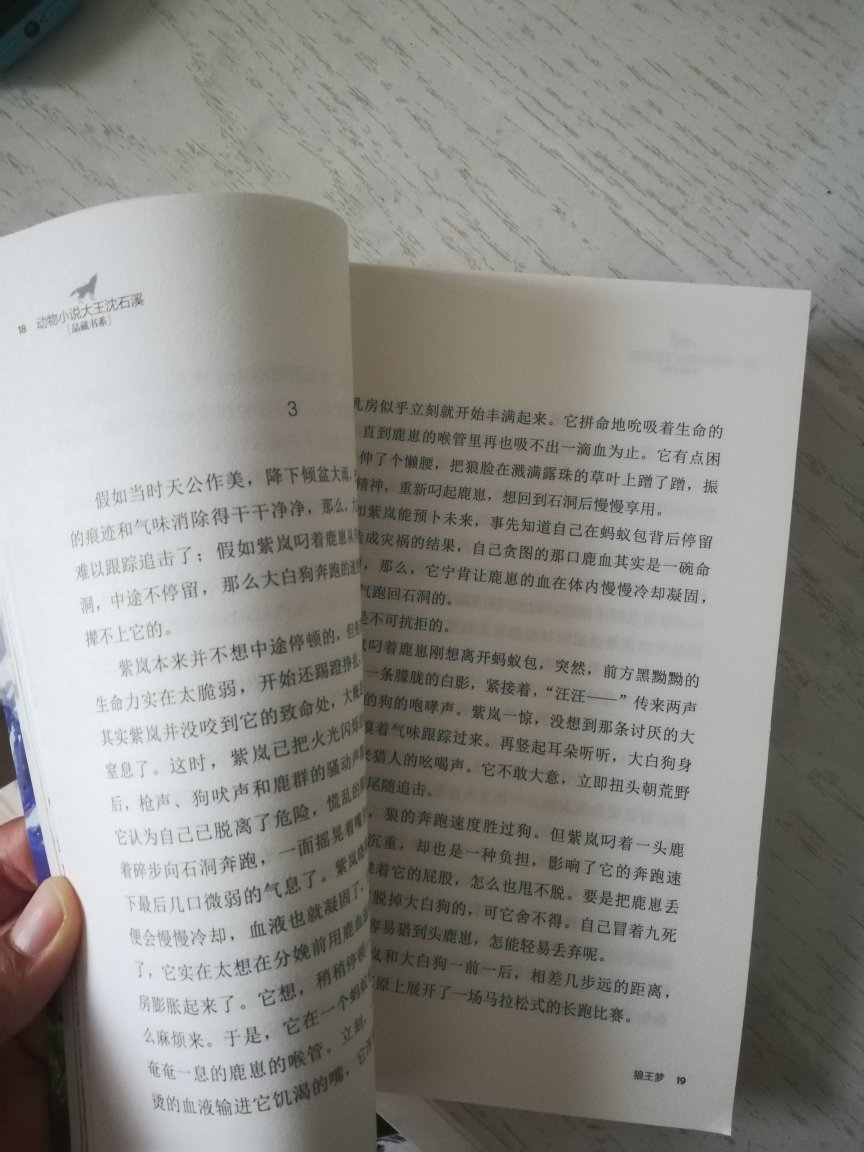 18 动物小说大王沈石溪
[品藏书系]
3
假如当时天公作美，降下倾盆大雨，
的痕迹和气味消除得干干净净，那么，
难以跟踪追击了；假如紫岚叼着鹿崽从
洞，中途不停留，那么大白狗奔跑的速
撵不上它的。
紫岚本来并不想中途停顿的，但
生命力实在太脆弱，开始还踢蹬挣扎
其实紫岚并没咬到它的致命处，大概
窒息了。这时，紫岚已把火光闪烁
后，枪声、狗吠声和鹿群的骚动声
它认为自己已脱离了危险，慌乱的
着碎步向石洞奔跑，一面摇晃着
下最后几口微弱的气息了。紫岚
便会慢慢冷却，血液也就凝固了。
了，它实在太想在分娩前用鹿血
房膨胀起来了。它想，稍稍停顿
么麻烦来。于是，它在一个蚂蚁
奄奄一息的鹿崽的喉管。立刻，
烫的血液输进它饥渴的嘴，它
乳房似乎立刻就开始丰满起来。它拼命地吮吸着生命的
直到鹿崽的喉管里再也吸不出一滴血为止。它有点困
伸了个懒腰，把狼脸在溅满露珠的草叶上蹭了蹭，振
精神，重新叼起鹿崽，想回到石洞后慢慢享用。
如紫岚能预卜未来，事先知道自己在蚂蚁包背后停留
成灾祸的结果，自己贪图的那口鹿血其实是一碗命
，那么，它宁肯让鹿崽的血在体内慢慢冷却凝固，
气跑回石洞的。
是不可抗拒的。
叼着鹿崽刚想离开蚂蚁包，突然，前方黑黝黝的
一条朦胧的白影，紧接着，“汪汪——”传来两声
的狗的咆哮声。紫岚一惊，没想到那条讨厌的大
嗅着气味跟踪过来。再竖起耳朵听听，大白狗身
猎人的吆喝声。它不敢大意，立即扭头朝荒野
尾随追击。
，狼的奔跑速度胜过狗。但紫岚叼着一头鹿
沉重，却也是一种负担，影响了它的奔跑速
着它的屁股，怎么也甩不脱。要是把鹿崽丢
脱掉大白狗的，可它舍不得。自己冒着九死
容易猎到头鹿崽，怎能轻易丢弃呢。
岚和大白狗一前一后，相差几步远的距离，
原上展开了一场马拉松式的长跑比赛。
狼王梦 19